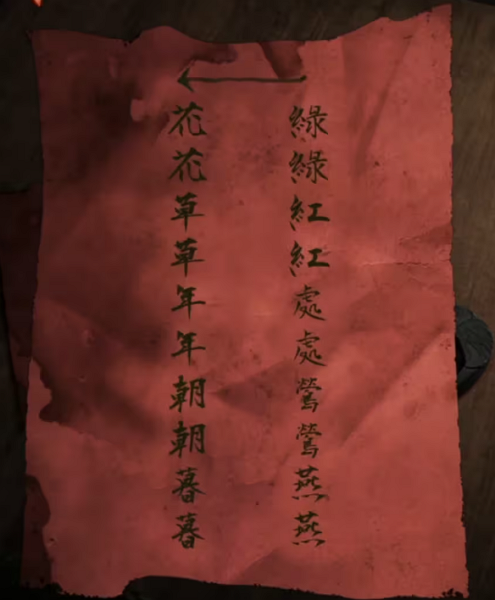 綠綠紅紅處處鶯鶯燕燕
花花草草年年朝朝暮暮